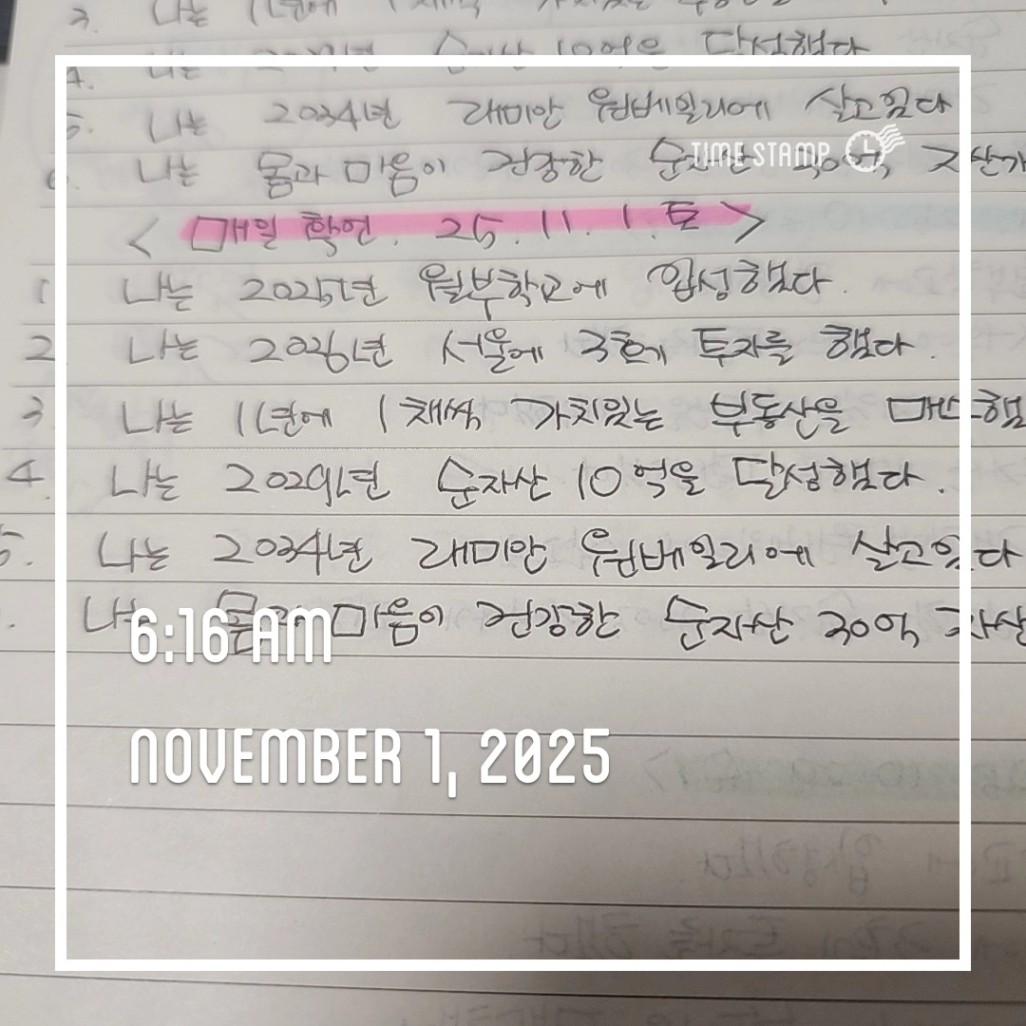 3. 나는 1년에 1채씩 가치있는
4. 나는 2029년 순자산 10억을 달성했다
5. 나는 2034년 래미안 원베일리에 살고있다
6. 나는 몸과 마음이 건강한 순자산 30억 자산가
TIME STAMP
< 매일 확언. 25. 11. 1. 토 >
1 나는 2025년 월부학교에 입성했다.
2 나는 2026년 서울에 3호기 투자를 했다.
3 나는 1년에 1채씩 가치있는 부동산을 매수했
4. 나는 2029년 순자산 10억을 달성했다.
5. 나는 2034년 래미안 원베일리에 살고있다
. 나는 몸과 마음이 건강한 순자산 30억 자산
6:16 AM
NOVEMBER 1, 2025